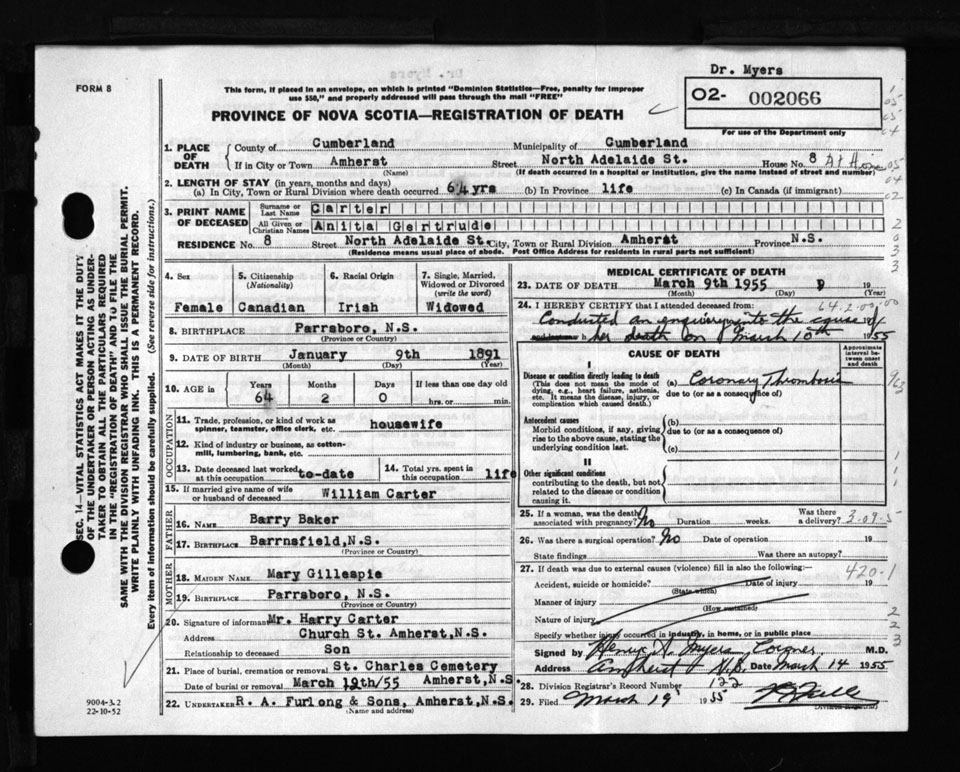 Dr. Myers
FORM 8
This form, if placed in an envelope, on which is printed "Dominion Statistics—Free, penalty for improper
use $50," and properly addressed will pass through the mail "FREE"
O2- 002066
For use of the Department only
PROVINCE OF NOVA SCOTIA—REGISTRATION OF DEATH
1. PLACE OF DEATH
County of Cumberland Municipality of Cumberland
If in City or Town Amherst Street North Adelaide St. House No. 8 At Home
(Name) (If death occurred in a hospital or institution, give the name instead of street and number)
2. LENGTH OF STAY (in years, months and days)
(a) In City, Town or Rural Division where death occurred 64 yrs (b) In Province life (c) In Canada (if immigrant)
3. PRINT NAME OF DECEASED
Surname or Last Name Carter
All Given or Christian Names Anita Gertrude
RESIDENCE No. 8 Street North Adelaide St. City, Town or Rural Division Amherst Province N.S.
(Residence means usual place of abode. Post Office Address for residents in rural parts not sufficient)
4. Sex
Female
5. Citizenship
(Nationality)
Canadian
6. Racial Origin
Irish
7. Single, Married, Widowed or Divorced
(write the word)
Widowed
8. BIRTHPLACE Parrsboro, N.S.
(Province or Country)
9. DATE OF BIRTH January 9th 1891
(Month) (Day) (Year)
10. AGE in Years Months Days If less than one day old
64 2 0 hrs. or min.
OCCUPATION
11. Trade, profession, or kind of work as spinner, teamster, office clerk, etc. housewife
12. Kind of industry or business, as cotton-mill, lumbering, bank, etc.
13. Date deceased last worked at this occupation to-date
14. Total yrs. spent in this occupation life
15. If married give name of wife or husband of deceased William Carter
FATHER
16. NAME Barry Baker
17. BIRTHPLACE Barrnsfield, N.S.
(Province or Country)
MOTHER
18. MAIDEN NAME Mary Gillespie
19. BIRTHPLACE Parrsboro, N.S.
(Province or Country)
20. Signature of informant Mr. Harry Carter
Address Church St. Amherst, N.S.
Relationship to deceased Son
21. Place of burial, cremation or removal St. Charles Cemetery
Date of burial or removal March 12th/55 Amherst, N.S.
22. UNDERTAKER R. A. Furlong & Sons, Amherst, N.S.
(Name and address)
MEDICAL CERTIFICATE OF DEATH
23. DATE OF DEATH March 9th 1955 19
(Month) (Day) (Year)
24. I HEREBY CERTIFY that I attended deceased from
Conducted an enquiry into the cause of
her death on March 10th 1955
CAUSE OF DEATH
Approximate interval between onset and death
I
Disease or condition directly leading to death
(This does not mean the mode of dying, e.g., heart failure, asthenia, etc. It means the disease, injury, or complication which caused death.)
(a) Coronary Thrombosis
due to (or as a consequence of)
Antecedent causes
Morbid conditions, if any, giving rise to the above cause, stating the underlying condition last.
(b)
due to (or as a consequence of)
(c)
II
Other significant conditions
contributing to the death, but not related to the disease or condition causing it.
25. If a woman, was the death associated with pregnancy? No Duration weeks. Was there a delivery?
3-09-5
26. Was there a surgical operation? No Date of operation 19
State findings Was there an autopsy?
27. If death was due to external causes (violence) fill in also the following:—
420-1
Accident, suicide or homicide? Date of injury 19
(State which)
Manner of injury
(How sustained)
Nature of injury
Specify whether injury occurred in industry, in home, or in public place
Signed by Henry A. Myers, Coroner M.D.
Address Amherst N.S. Date March 14 1955
28. Division Registrar's Record Number 122
29. Filed March 19 1955
Division Registrar
SEC. 14—VITAL STATISTICS ACT MAKES IT THE DUTY
OF THE UNDERTAKER OR PERSON ACTING AS UNDER-
TAKER TO OBTAIN ALL THE PARTICULARS REQUIRED
IN THE "REGISTRATION OF DEATH" AND TO FILE THE
SAME WITH THE DIVISION REGISTRAR WHO SHALL ISSUE THE BURIAL PERMIT.
WRITE PLAINLY WITH UNFADING INK. THIS IS A PERMANENT RECORD.
Every item of information should be carefully supplied. (See reverse side for instructions.)
9004-3.2
22-10-52